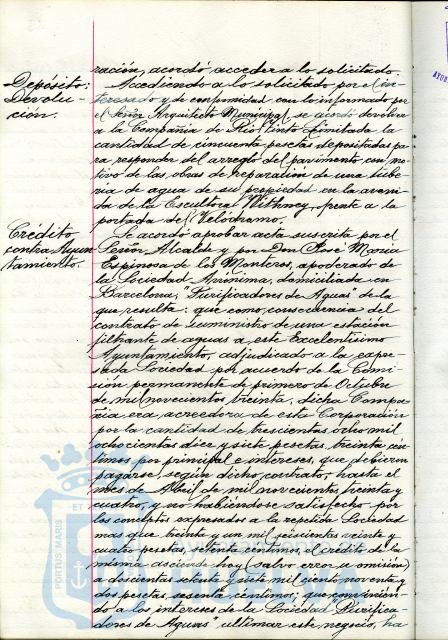 ración, acordó acceder a lo solicitado.
Depósito:
Devolu-
ción.
Accediendo a lo solicitado por el in-
teresado y de conformidad con lo informado por
el Señor Arquitecto Municipal, se acordó devolver
a la Compañia de Rio Tinto Limitada la
cantidad de cincuenta pesetas depositadas pa
ra responder del arreglo del pavimento con mo-
tivo de las obras de reparación de una tube-
ria de agua de su propiedad en la aveni-
da de la Escultora Withney, frente a la
portada del Velódromo.
Crédito
contra Ayun
tamiento.
Se acordó aprobar acta suscrita por el
Señor Alcalde y por Don José Maria
Espinosa de los Monteros, apoderado de
la Sociedad Anónima, domiciliada en
Barcelona, "Purificadores de Aguas" de la
que resulta: que como consecuencia del
contrato de suministro de una estación
filtrante de aguas a este Excelentísimo
Ayuntamiento, adjudicado a la expre-
sada Sociedad por acuerdo de la Comi
sión permanente de primero de Octubre
de mil novecientos treinta, dicha Compa-
ñia era acreedora de esta Corporación
por la cantidad de trescientas ocho mil
ochocientas diez y siete pesetas, treinta cén
timos por principal e intereses, que debieron
pagarse, según dicho contrato, hasta el
mes de Abril de mil novecientos treinta y
cuatro, y no habiendose satisfecho por
los conceptos expresados a la repetida Sociedad
mas que treinta y un mil seiscientas veinte y
cuatro pesetas, setenta céntimos, el crédito de la
misma asciende hoy (salvo error u omisión)
a doscientas setenta y siete mil ciento noventa y
dos pesetas, sesenta céntimos; que convinien-
do a los intereses de la Sociedad "Purifica-
dores de Aguas" ultimar este negocio, ha
PORTUS MARIS ET